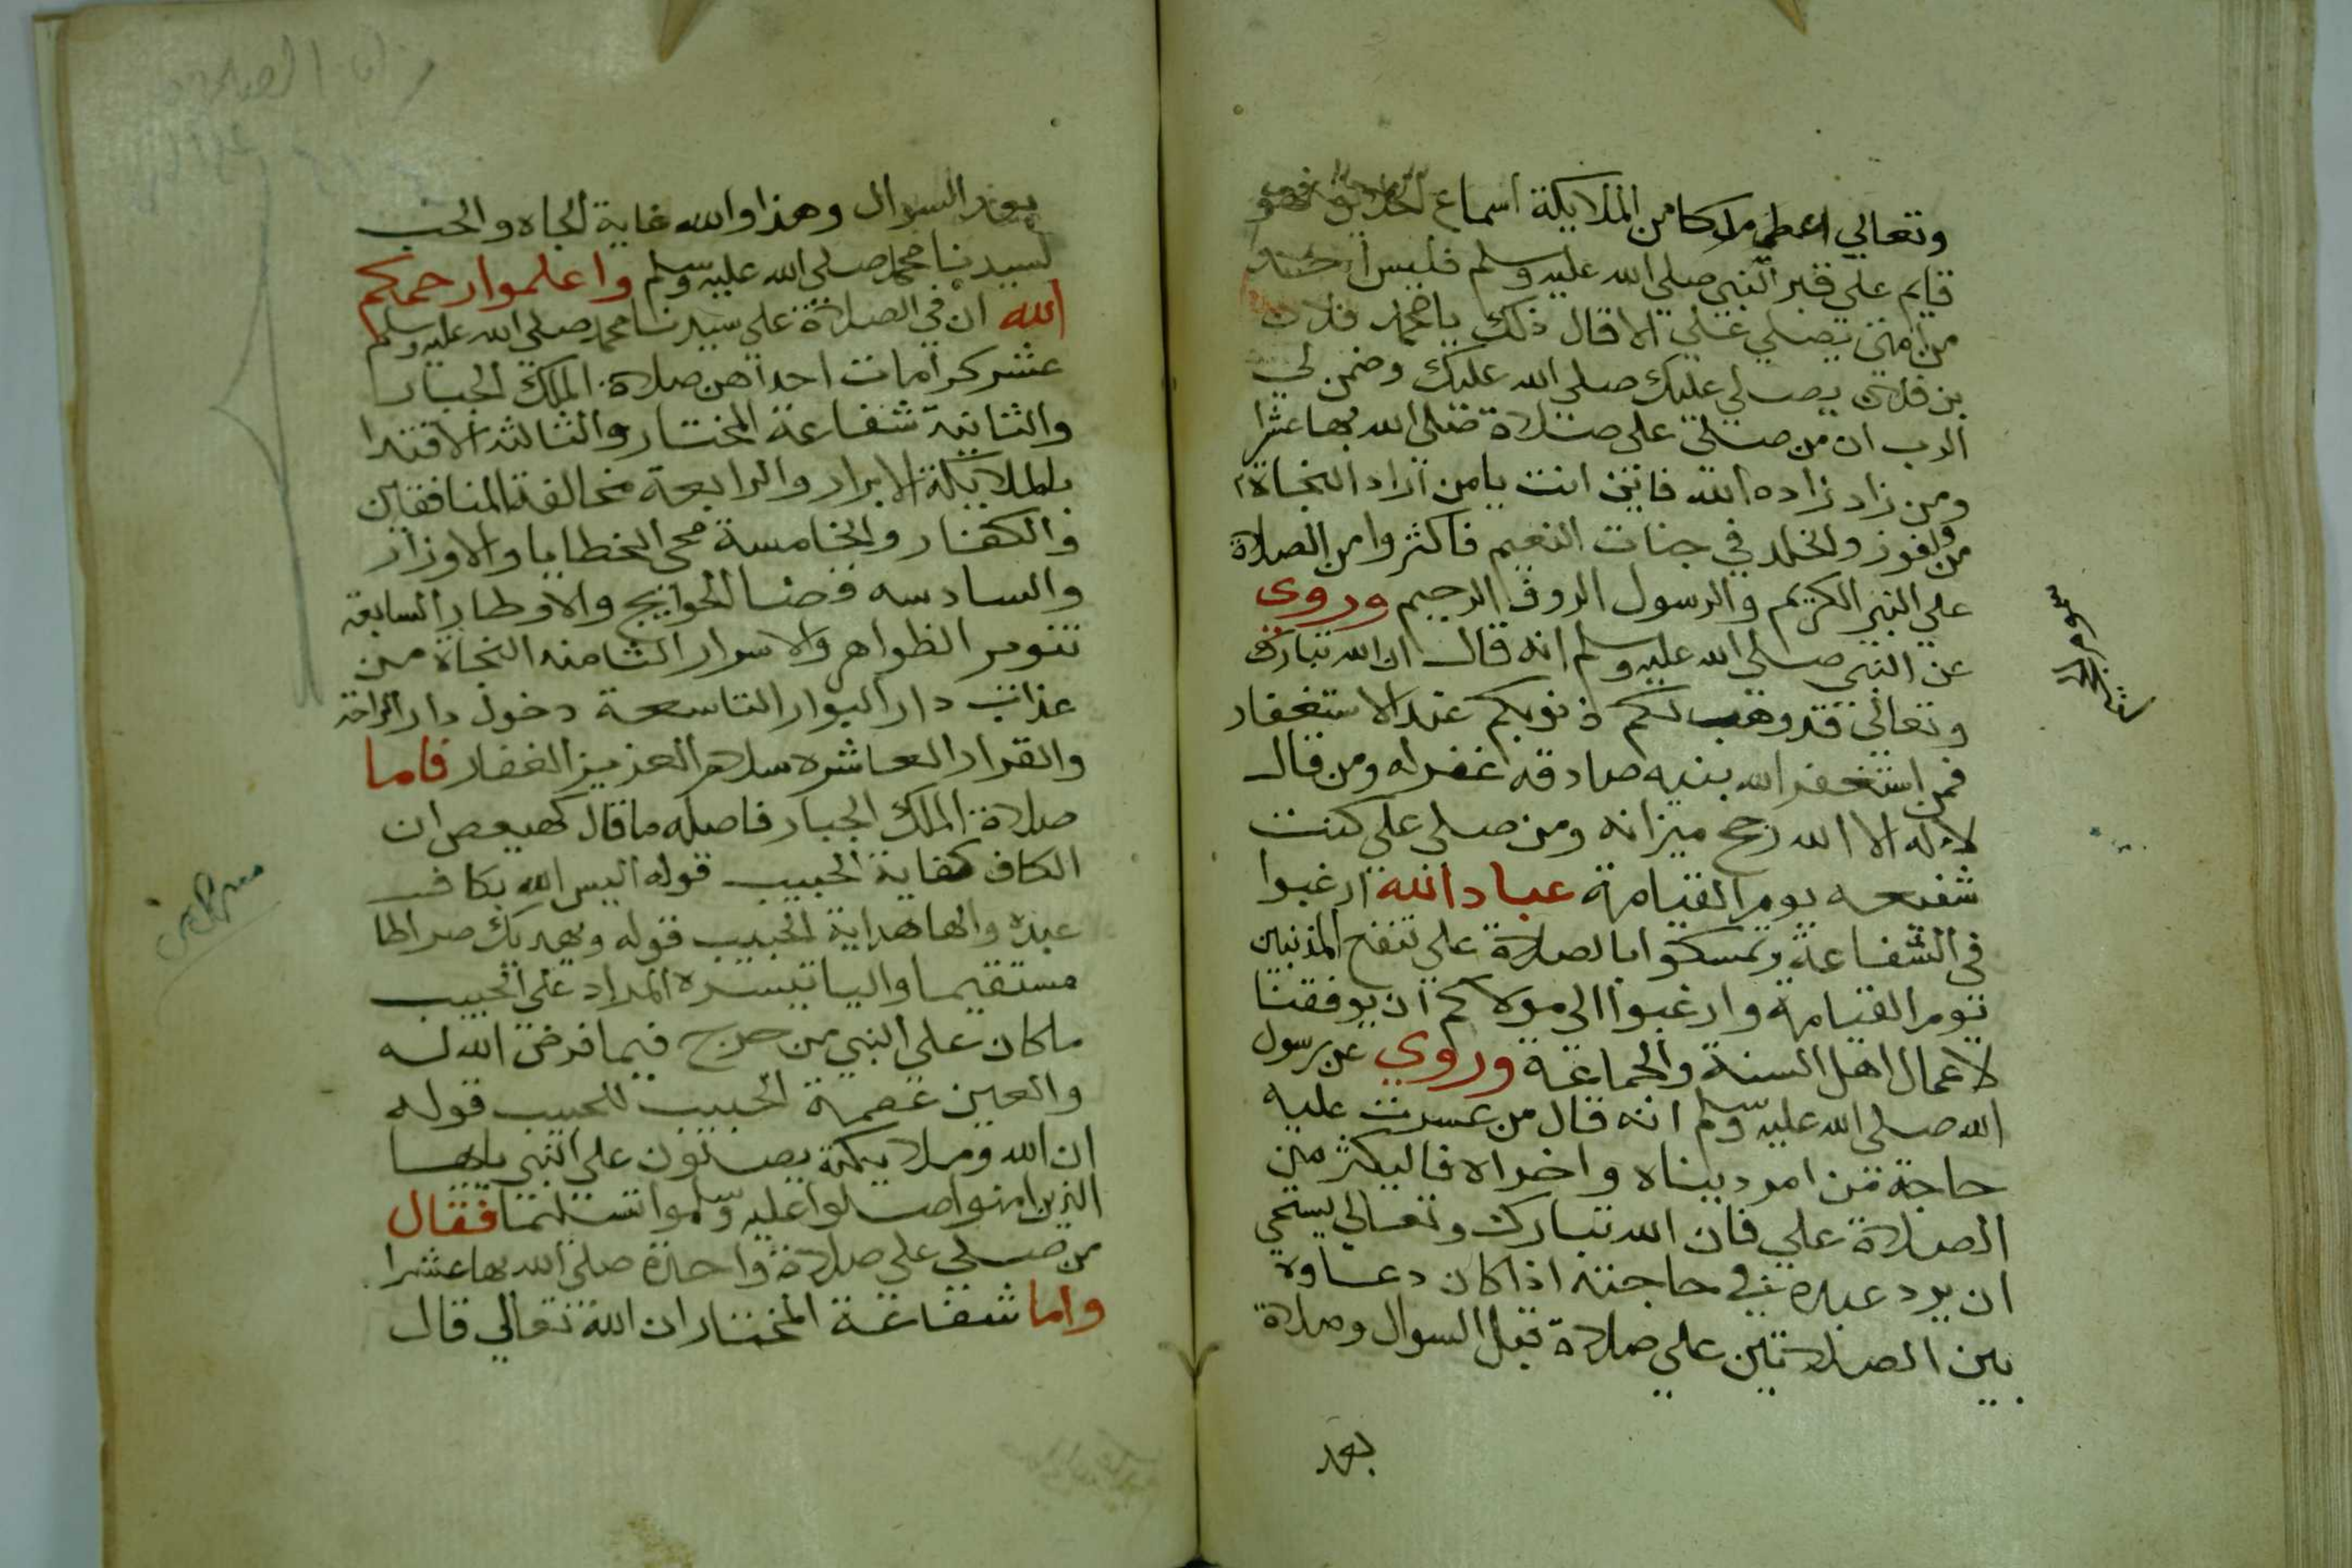 وتعالي اعطي ملكا من الملايكة اسماع الخلايق فهو
قايم علي قبر النبي صلي الله عليه وسلم فليس احد
من امتي يصلي علي الا قال ذلك يا محمد فلان
بن فلان يصلي عليك صلي الله عليك وضمن لي
الرب ان من صلي علي صلاة صلي الله بها عشرا
ومن زاد زاده الله فاين انت يا من اراد النجاة
من ولفوز ولخلد في جنات النعيم فاكثروا من الصلاة
علي النبي الكريم والرسول الروف الرحيم وروي
عن النبي صلي الله عليه وسلم انه قال ان الله تبارك
وتعالي قد وهب لكم ذنوبكم عند الاستغفار
فمن استغفر الله بنيه صادقه اغفر له ومن قال
لا اله الا الله رجح ميزانه ومن صلي علي كنت
شفيعه يوم القيامة عباد الله ارغبوا
في الشفاعة وتمسكوا بالصلاة علي المذنبين
يوم القيامة وارغبوا الي مولاكم ان يوفقنا
لاعمال اهل السنة والجماعة وروي عن رسول
الله صلي الله عليه وسلم انه قال من عسرت عليه
حاجة من امور ديناه واخراه فاليكثر من
الصلاة علي فان الله تبارك وتعالي يستحي
ان يرد عبده في حاجته اذا كان دعاوه
بين الصلاتين علي صلاة قبل السوال وصلاة
بعد
بعد السوال وهذا والله غاية الجاه والحب
لسيدنا محمد صلي الله عليه وسلم واعلموا رحمكم
الله ان في الصلاة علي سيدنا محمد صلي الله عليه وسلم
عشر كرامات احداهن صلاة الملك الجبار
والثانية شفاعة المختار والثالثه الاقتدا
بالملايكة الابرار والرابعة مخالفة المنافقين
والكفار والخامسة محي الخطايا والاوزار
والسادسه قضا الحوايج والاوطار السابعة
تنوير الظواهر والاسرار الثامنه النجاة من
عذاب دار البوار التاسعة دخول دار الراحة
والقرار العاشره سلام العزيز الغفار فاما
صلاة الملك الجبار فاصله ما قال كهيعص ان
الكاف كفاية الحبيب قوله اليس الله بكاف
عبده والها هداية الحبيب قوله ويهديك صراطا
مستقيما واليا تيسره المراد علي الحبيب
ما كان علي النبي من حرج فيما فرض الله له
والعين عصمة الحبيب للحبيب قوله
ان الله وملايكته يصلون علي النبي يايها
الذين امنوا صلوا عليه وسلموا تسليما فقال
من صلي علي صلاة واحدة صلي الله بها عشرا
واما شفاعة المختار ان الله تعالي قال